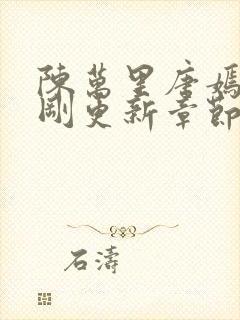 陳萬里唐嫣
剛更新章節
石濤